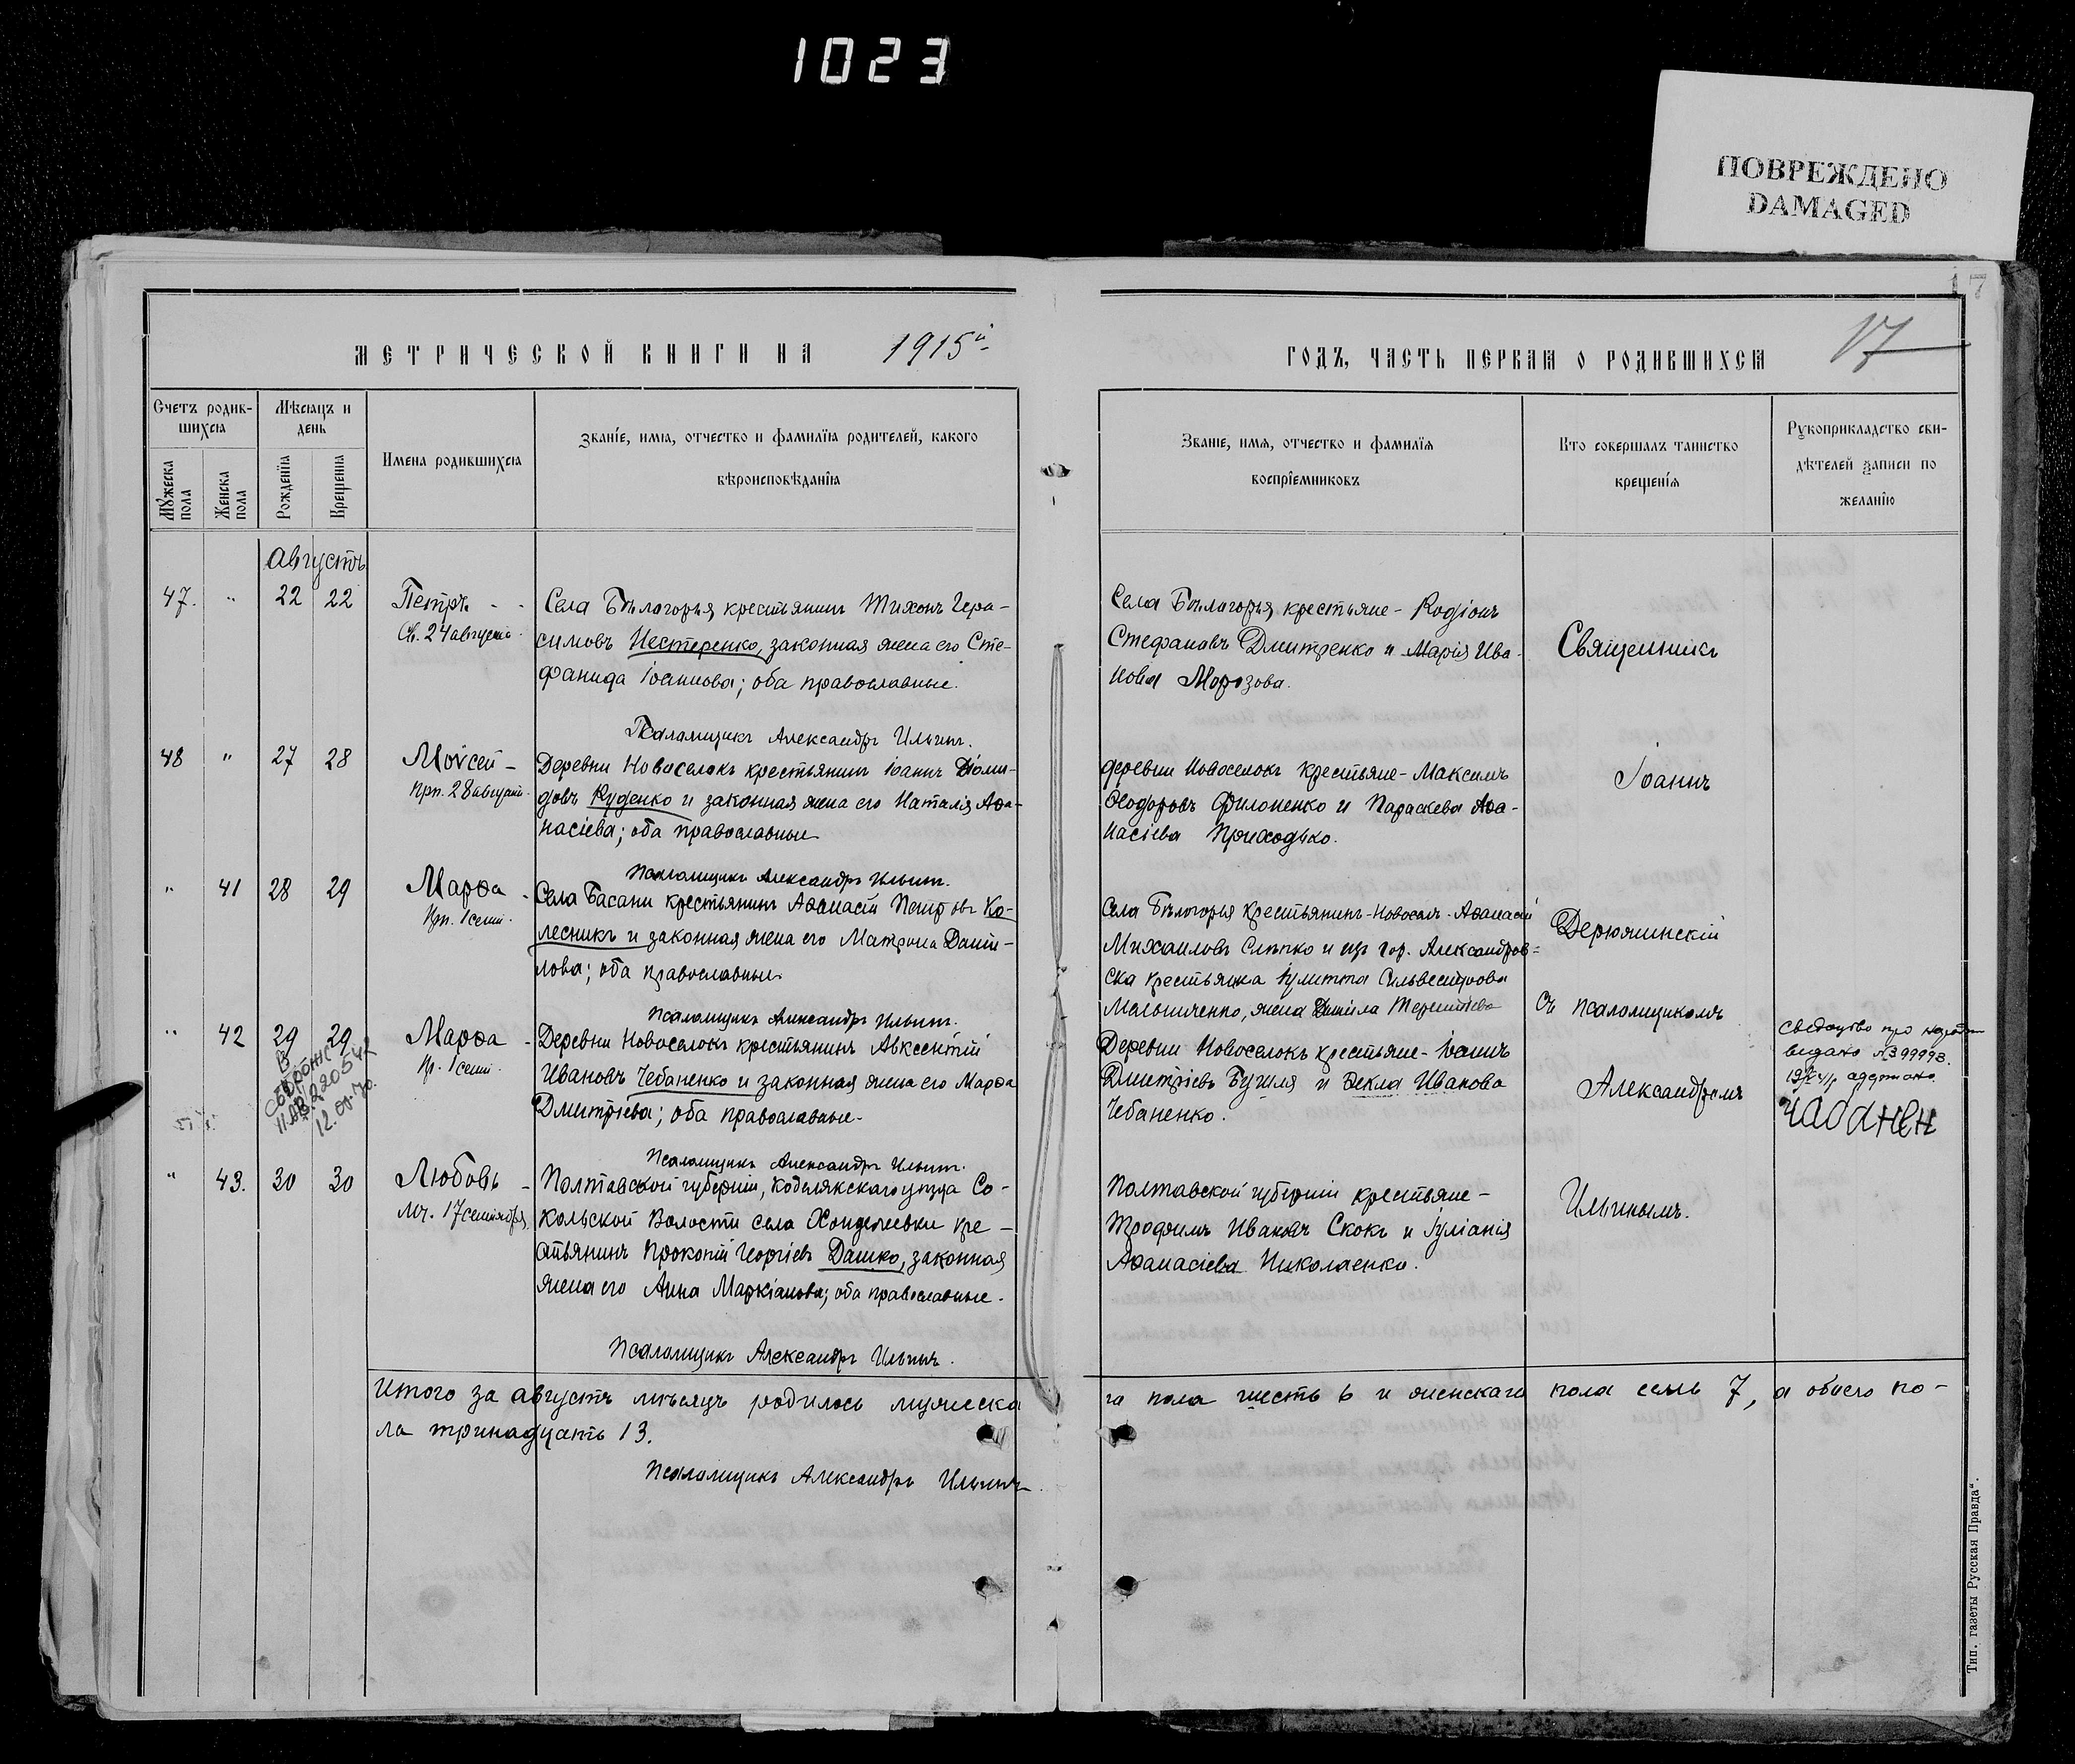 1023
ПОВРЕЖДЕНО
DAMAGED
17
17
МЕТРИЧЕСКОЙ КНИГИ НА 1915й
ГОДЪ, ЧАСТЬ ПЕРВАЯ О РОДИВШИХСЯ
Счетъ родив-
шихся
Мѣсяцъ и
день
Мужеска
пола
Женска
пола
Рожденія
Крещенія
Имена родившихся
Званіе, имя, отчество и фамилія родителей, какого
вѣроисповѣданія
Званіе, имя, отчество и фамилія
воспріемниковъ
Кто совершалъ таинство
крещенія
Рукоприкладство сви-
дѣтелей записи по
желанію
Августъ
47. " 22 22
Петръ - -
Св. 24 августа.
Села Бѣлогорья крестьянинъ Тихонъ Гера-
симовъ Нестеренко, законная жена его Сте-
фанида Іоаннова; оба православные.
Псаломщикъ Александръ Ильинъ.
Села Бѣлогорья крестьяне - Родіонъ
Стефановъ Дмитренко и Марія Ива-
нова Морозова.
Священникъ
48 " 27 28
Моѵсей -
прп. 28 августа.
Деревни Новоселокъ крестьянинъ Іоаннъ Діоми-
довъ Руденко и законная жена его Наталія Аѳа-
насіева; оба православные
Псаломщикъ Александръ Ильинъ.
деревни Новоселокъ крестьяне - Максимъ
Ѳеодоровъ Филоненко и Параскева Аѳа-
насіева Приходько.
Іоаннъ
" 41 28 29
Марѳа -
Прп. 1 сент.
Села Басани крестьянинъ Аѳанасій Петровъ Ко-
лесникъ и законная жена его Матрона Даніи-
лова; оба православные.
Псаломщикъ Александръ Ильинъ.
Села Бѣлогорья крестьянинъ-Новосел. Аѳанасій
Михаиловъ Слѣпко и изъ гор. Александров-
ска крестьянка Іулитта Сильвестрова
Мельниченко, жена Даніила Терентіева
Дерюжинскій
" 42 29 29
Марѳа -
Пр. 1 сент.
Деревни Новоселокъ крестьянинъ Авксентій
Ивановъ Чебаненко и законная жена его Марѳа
Дмитріева; оба православные.
Псаломщикъ Александръ Ильинъ.
Деревни Новоселокъ крестьяне - Іоаннъ
Дмитріевъ Бугиля и Ѳекла Иванова
Чебаненко.
Съ псаломщикомъ
Александромъ
видано №399998.
" 43. 30 30
Любовь -
мч. 17 сентября
Полтавской губерніи, Кобелякскаго уѣзда Со-
кольской Волости села Хонделеевки кре-
стьянинъ Прокопій Георгіевъ Дашко, законная
жена его Анна Маркіанова; оба православные.
Псаломщикъ Александръ Ильинъ.
Полтавской губерніи крестьяне -
Трофимъ Ивановъ Скокъ и Іуліанія
Аѳанасіева Николаенко.
Ильинымъ.
Итого за августъ мѣсяцъ родилось мужеска
го пола шесть 6 и женскаго пола семь 7, а обоего по-
ла тринадцать 13.
Псаломщикъ Александръ Ильинъ.
Тип. газеты Русская Правда".